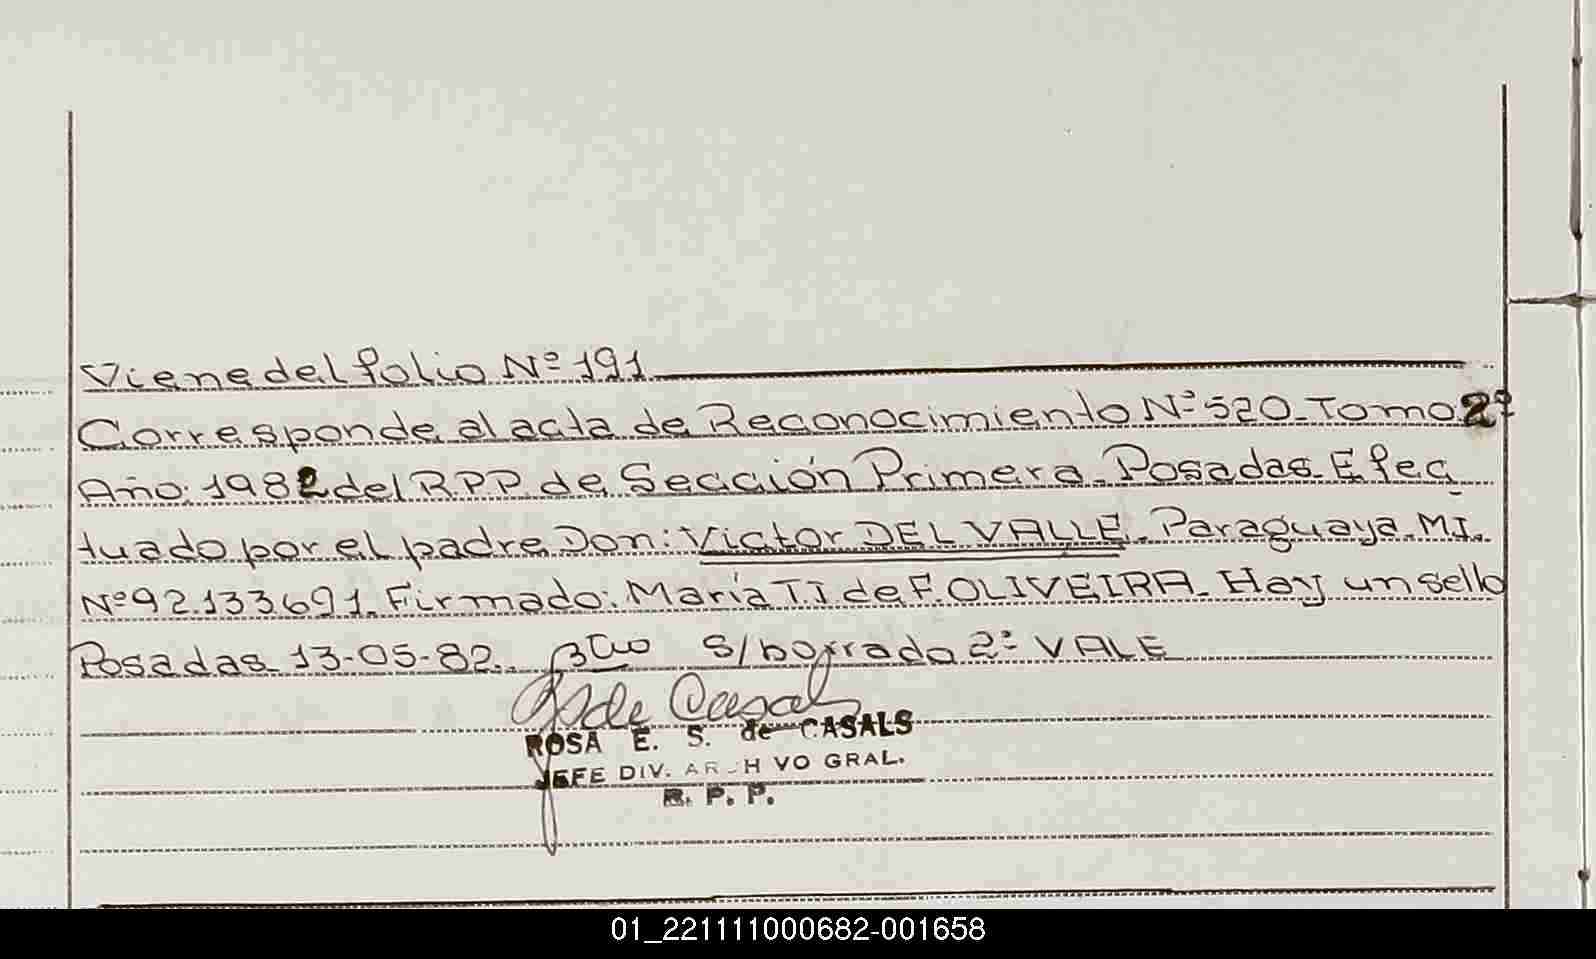 Viene del folio Nº 191
Corresponde al acta de Reconocimiento Nº 520. Tomo 2º
Año: 1982 del RPP. de Sección Primera. Posadas. Efec
tuado por el padre Don: Victor DEL VALLE. Paraguaya. M.I.
Nº 92.133.691. Firmado: María T.I. de F. OLIVEIRA. Hay un sello
Posadas. 13-05-82. S/borrado 2º VALE
de Casals
ROSA E. S. de CASALS
JEFE DIV. ARCHIVO GRAL.
R. P. P.
01_221111000682-001658